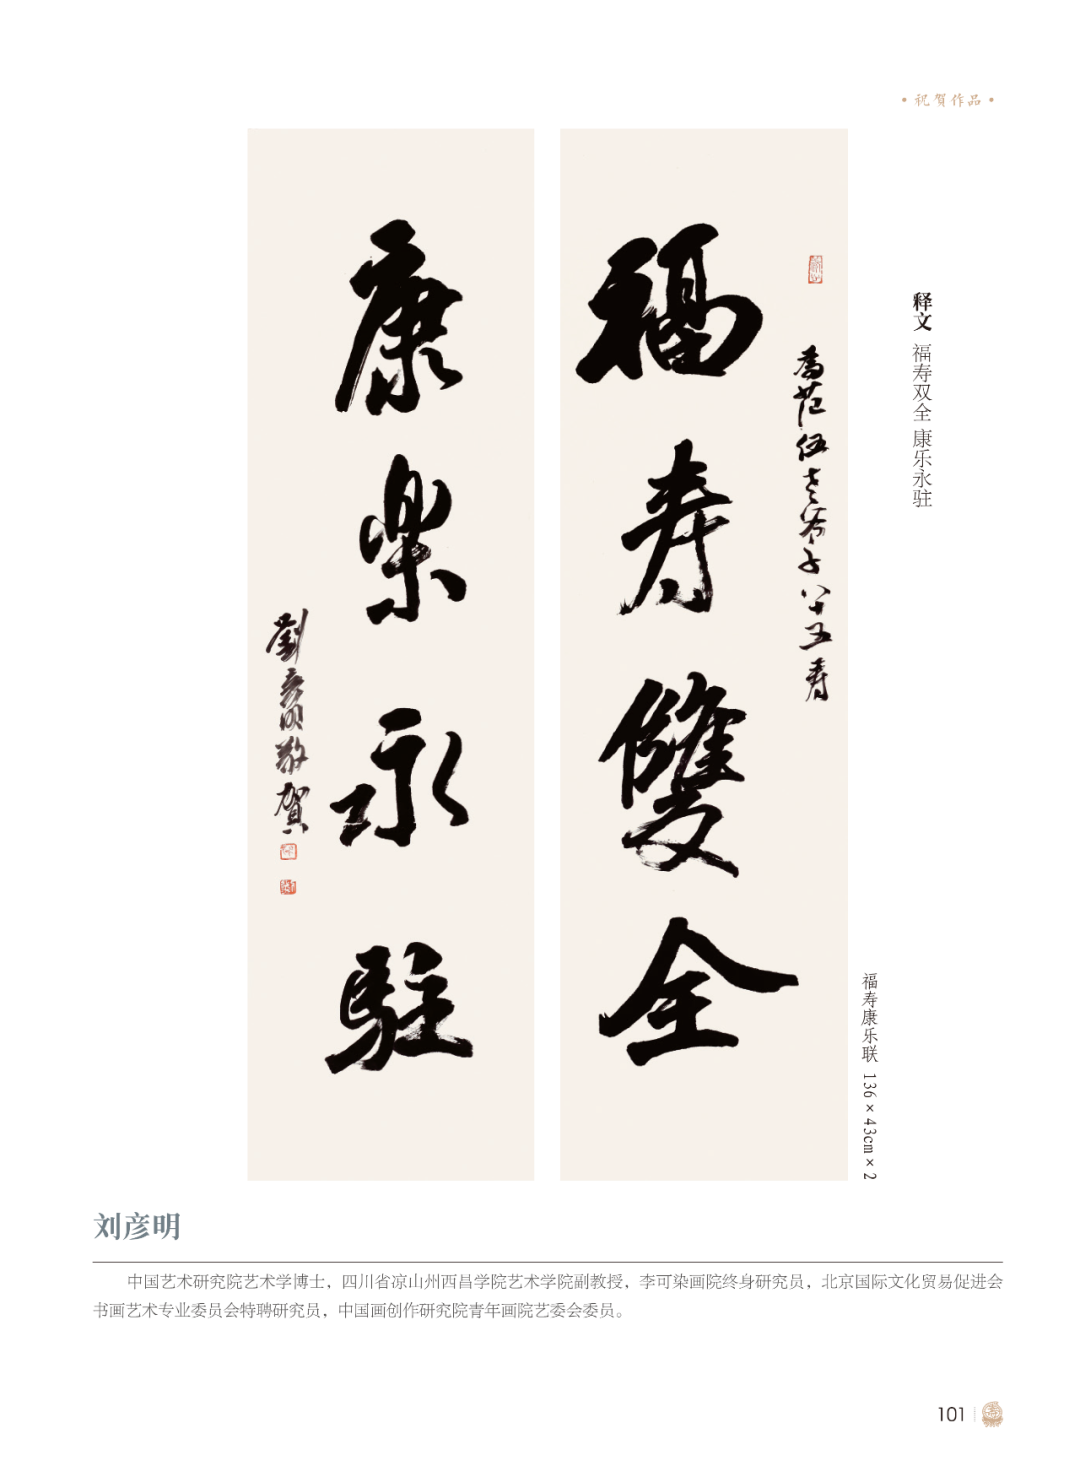 ·祝賀作品·
释文 福寿双全 康乐永驻
為范伍老爷子八十五寿
福寿雙全
康樂永駐
劉彦明敬賀
福寿康乐联 136×43cm×2
刘彦明
中国艺术研究院艺术学博士，四川省凉山州西昌学院艺术学院副教授，李可染画院终身研究员，北京国际文化贸易促进会
书画艺术专业委员会特聘研究员，中国画创作研究院青年画院艺委会委员。
101